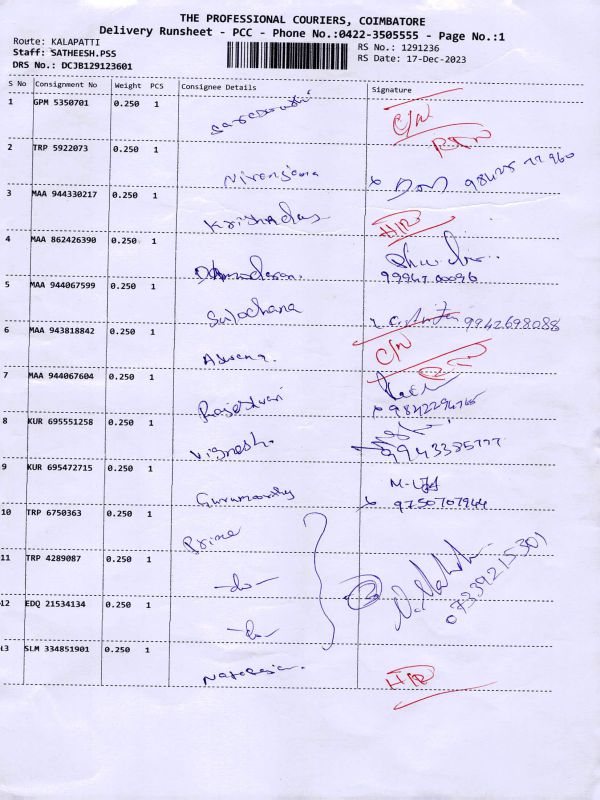 THE PROFESSIONAL COURIERS, COIMBATORE
Delivery Runsheet - PCC - Phone No.:0422-3505555 - Page No.:1
Route: KALAPATTI
RS No.: 1291236
Staff: SATHEESH.PSS
RS Date: 17-Dec-2023
DRS No.: DCJB129123601
S No Consignment No Weight PCS Consignee Details Signature
1 GPM 5350701 0.250 1 C/N
2 TRP 5922073 0.250 1 Niranjana
3 MAA 944330217 0.250 1 Krishnadas H/R
4 MAA 862426390 0.250 1 Damodaran.
5 MAA 944067599 0.250 1 Sulochana 9942698088
6 MAA 943818842 0.250 1 C/N
7 MAA 944067604 0.250 1 Rajeshwari
8 KUR 695551258 0.250 1 Vignesh. 9943385777
9 KUR 695472715 0.250 1 Gurumoorthy 9750707944
10 TRP 6750363 0.250 1 Prime
11 TRP 4289087 0.250 1 -do-
07339215301
12 EDQ 21534134 0.250 1 -do-
13 SLM 334851901 0.250 1 Natarajan. H/R